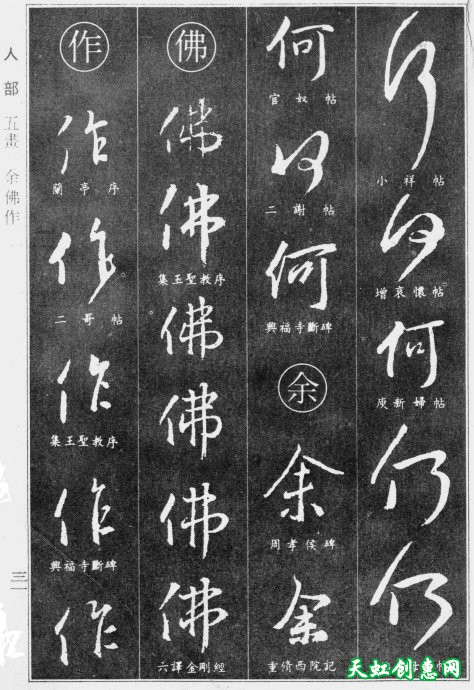 何
小祥帖
何
增哀懷帖
何
庾新婦帖
何
何
帖
何
官奴帖
何
二謝帖
何
興福寺斷碑
余
余
周孝侯碑
余
重脩西院記
佛
佛
佛
集王聖教序
佛
佛
佛
佛
六譯金剛經
作
作
蘭亭序
作
二哥帖
作
集王聖教序
作
興福寺斷碑
作
人部 五畫 余佛作
三一
天虹创惠网